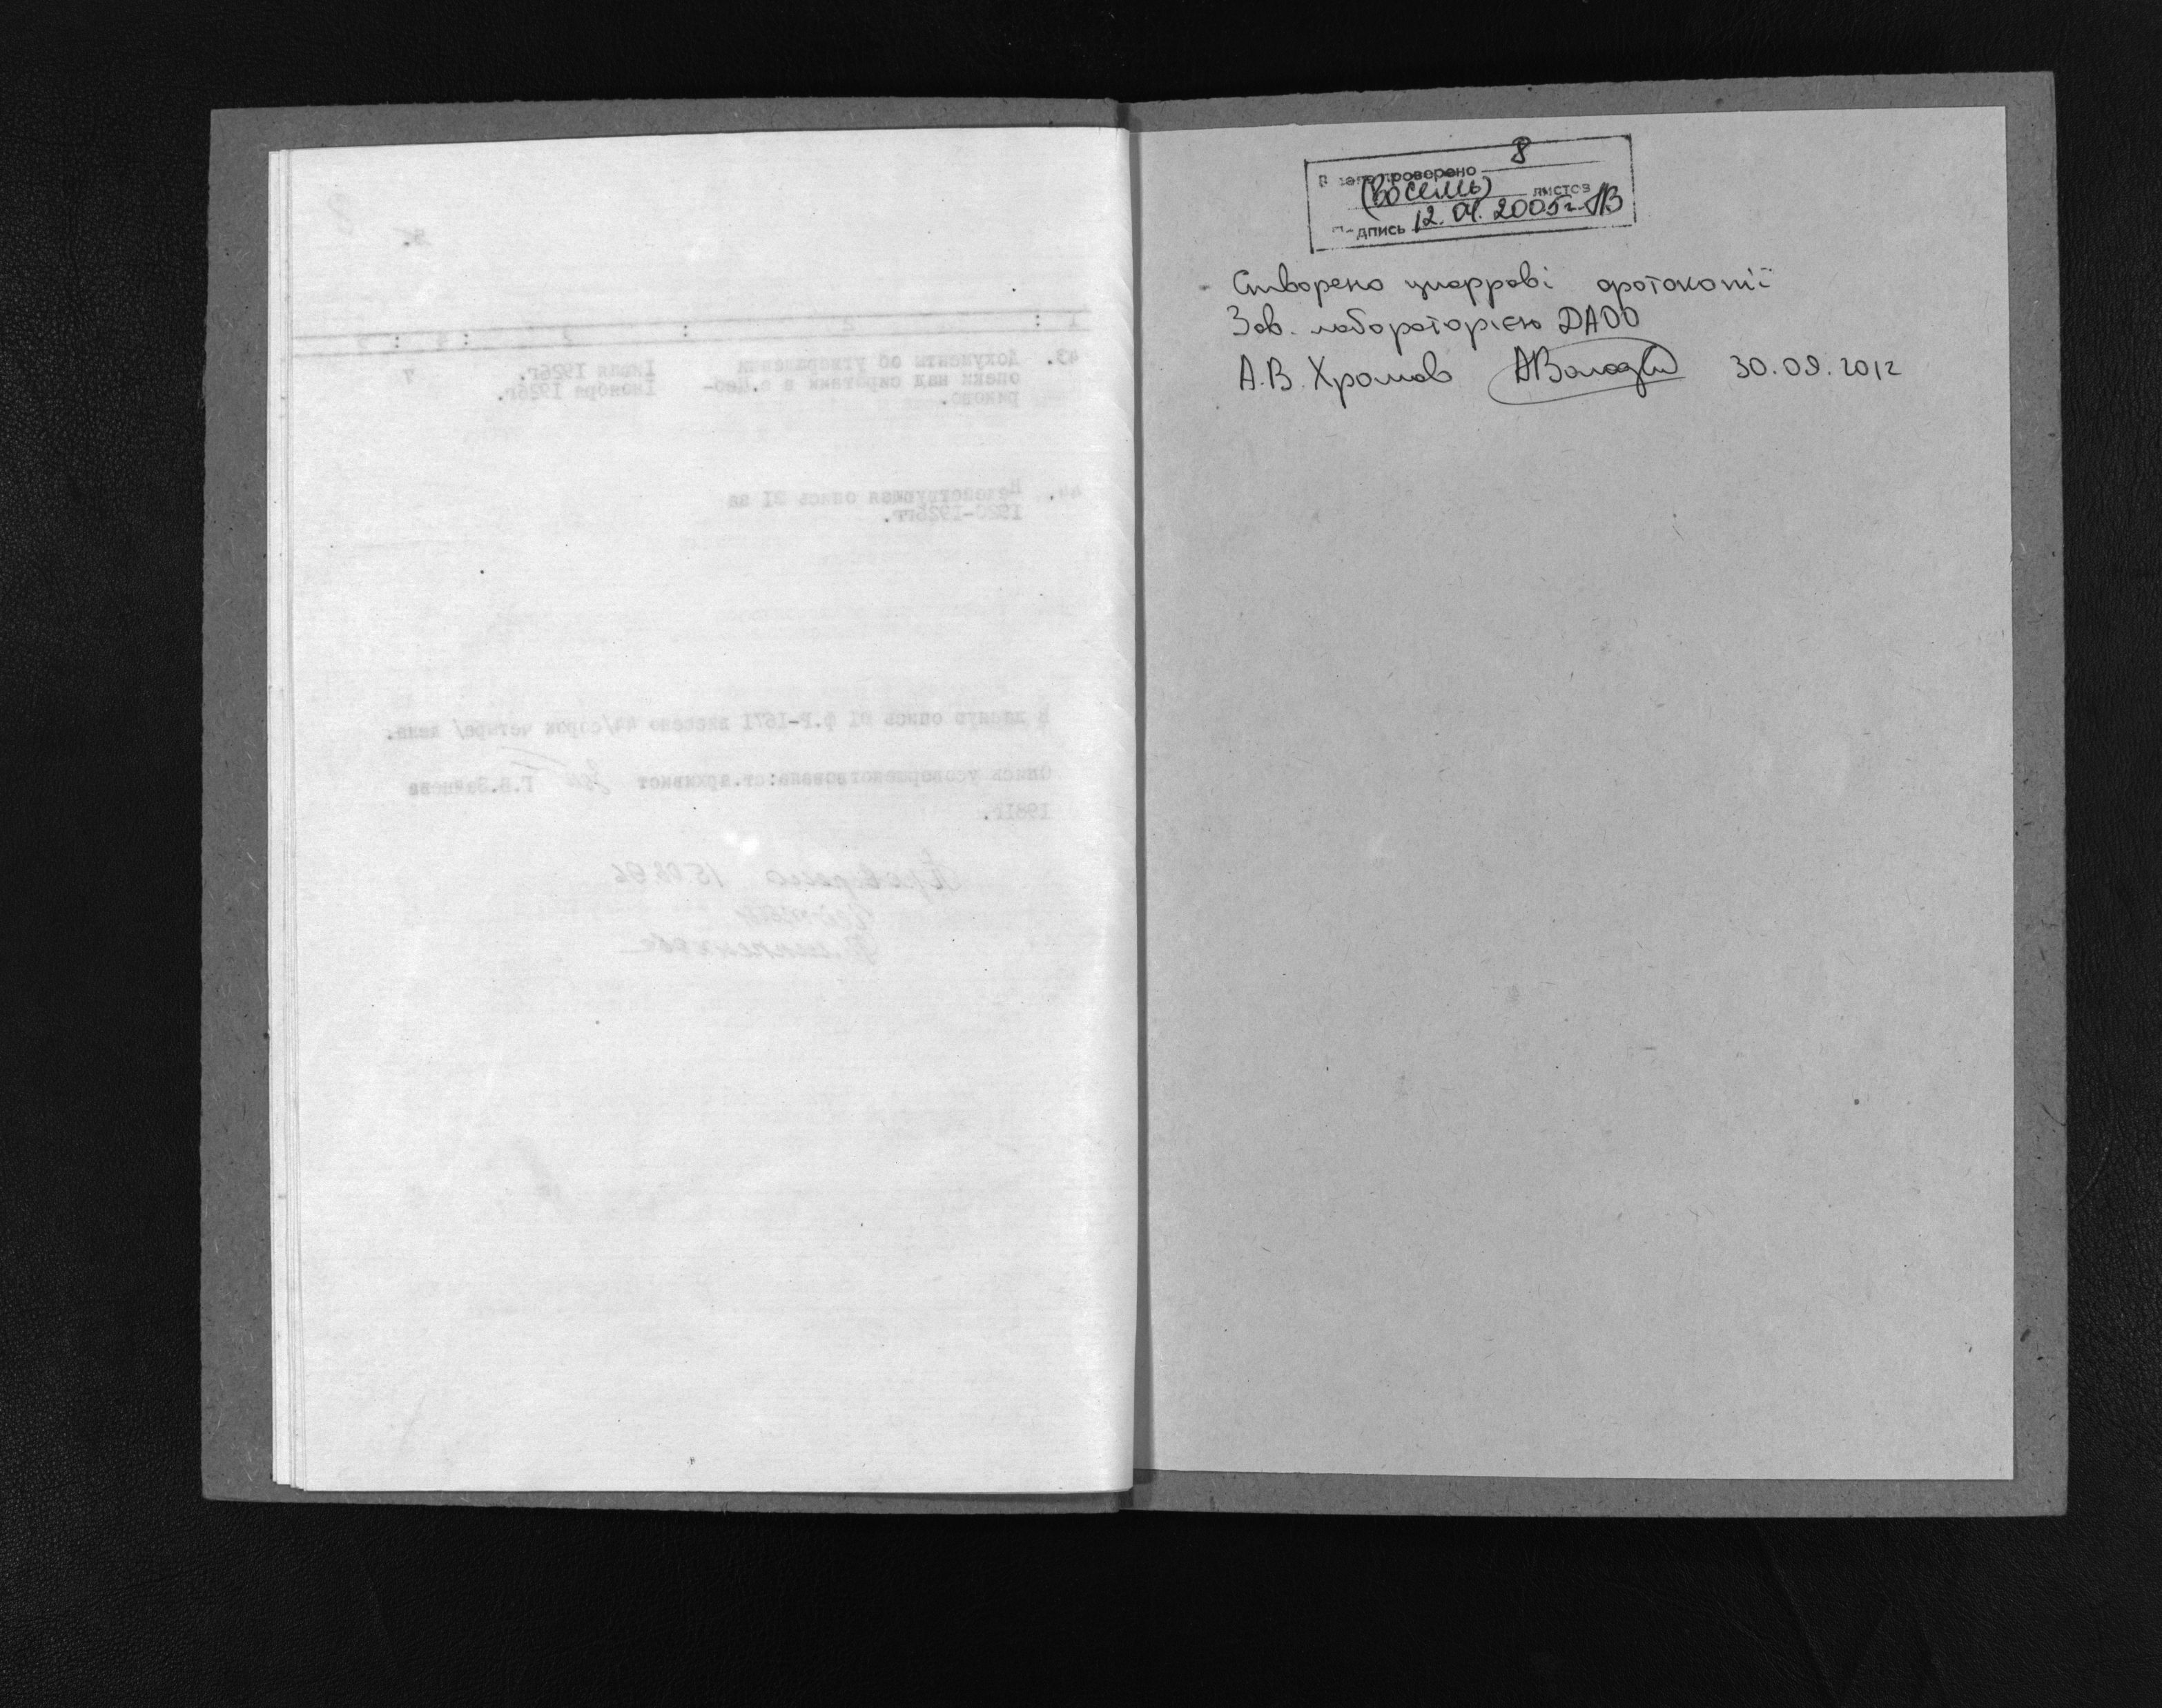 43. Документы об утверждении
опеки над сиротами в с.Цеб-
риково.
1июля 1926г.
1ноября 1926г.
7
44. Недействующая опись №1 за
1920-1926гг.
В данную опись №1 ф.Р-1671 внесено 44/сорок четыре/ дела.
Опись усовершенствовала:ст.архивист Г.В.Зайцева
1981г.
Проверено
8
В деле проверено 8
(восемь) листов
Подпись 12.04.2005г.
Створено цифрові фотокопії
Зав. лабораторією ДАОО
А.В. Хромов 30.09.2012